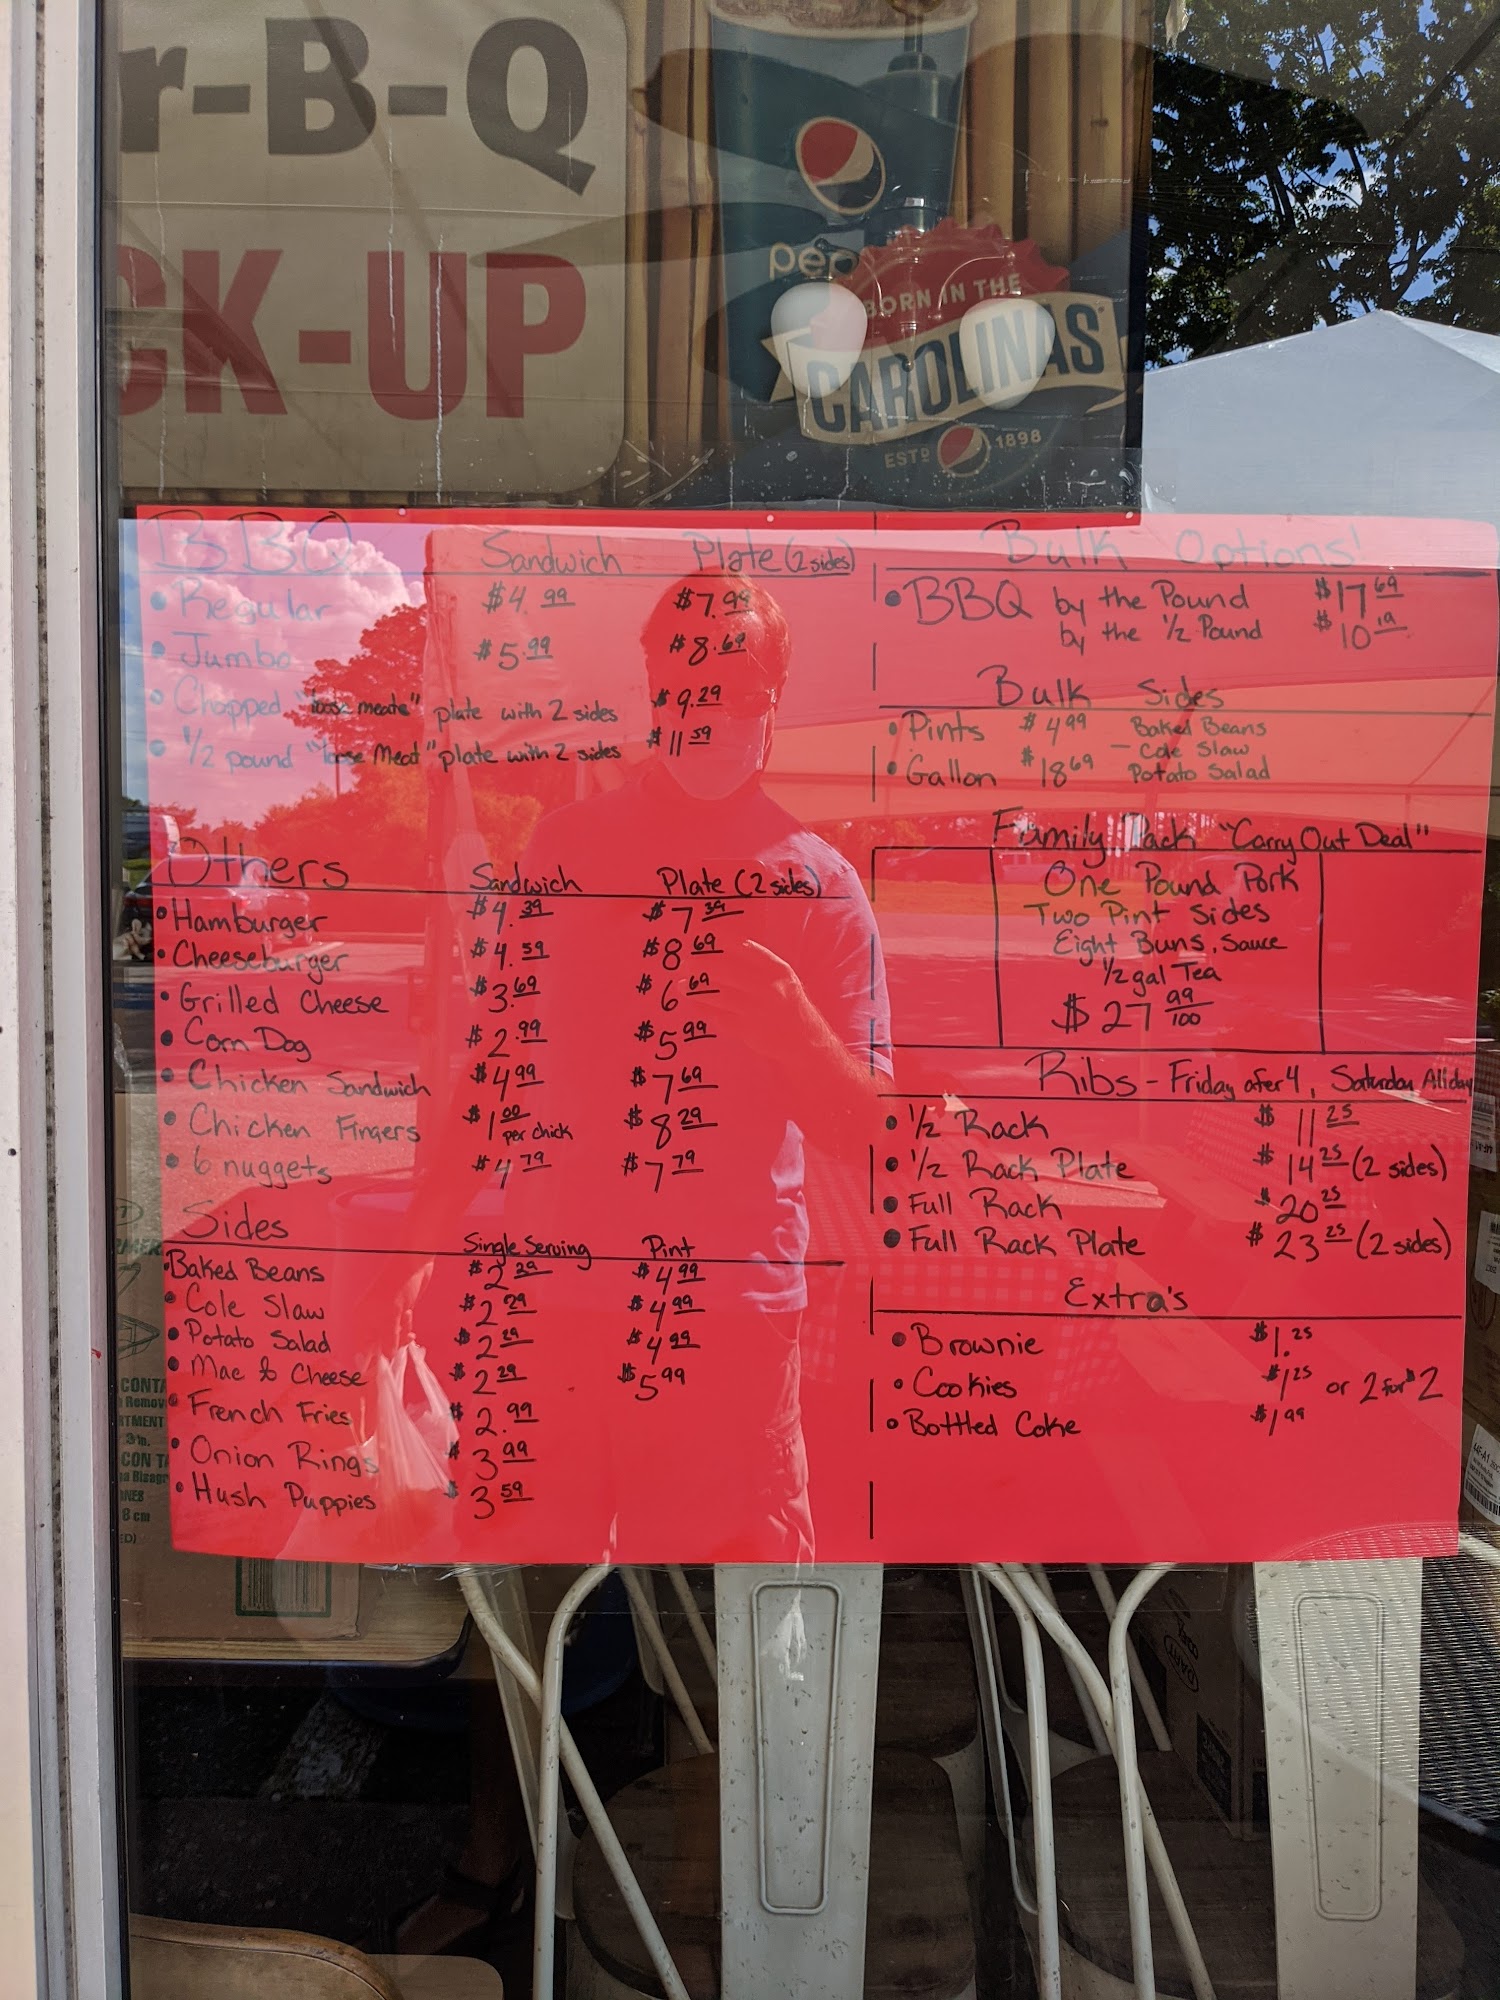 r-B-Q
CK-UP
pep
BORN IN THE
CAROLINAS
ESTD 1898
BBQ Sandwich Plate (2 sides)
• Regular $4.99 $7.99
• Jumbo $5.99 $8.69
• Chopped "loose meate" plate with 2 sides $9.29
• 1/2 pound "loose Meat" plate with 2 sides $11 59
Others Sandwich Plate (2 sides)
• Hamburger $4.39 $7 39
• Cheeseburger $4.59 $8 69
• Grilled Cheese $3.69 $6 69
• Corn Dog $2.99 $5 99
• Chicken Sandwich $4 99 $7 69
• Chicken Fingers $1 00 per chick $8 29
• 6 nuggets $4 79 $7 79
Sides Single Serving Pint
• Baked Beans $2 29 $4 99
• Cole Slaw $2 29 $4 99
• Potato Salad $2 29 $4 99
• Mac & Cheese $2 29 $5 99
• French Fries $2.99
• Onion Rings $3 99
• Hush Puppies $3 59
Bulk Options!
• BBQ by the Pound $17 69
by the 1/2 Pound $10 19
Bulk Sides
• Pints $4 99 Baked Beans
– Cole Slaw
• Gallon $18 69 Potato Salad
Family Pack "Carry Out Deal"
One Pound Pork
Two Pint Sides
Eight Buns, Sauce
1/2 gal Tea
$27 99/100
Ribs - Friday afer 4, Saturday All day
• 1/2 Rack $11 25
• 1/2 Rack Plate $14 25 (2 sides)
• Full Rack $20 25
• Full Rack Plate $23 25 (2 sides)
Extra's
• Brownie $1.25
• Cookies $1 25 or 2 for $2
• Bottled Coke $1 99